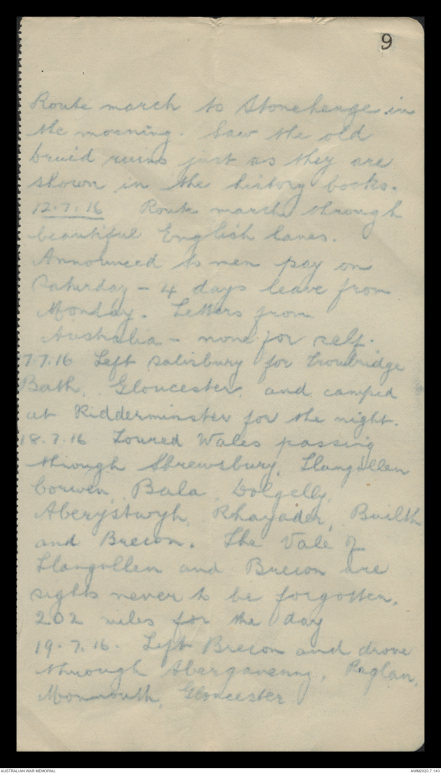 9
Route march to Stonehenge in
the morning. Saw the old
druid ruins just as they are
shown in the history books.
12.7.16 Route march through
beautiful English lanes.
Announced to men pay on
Saturday - 4 days leave from
Monday. Letters from
Australia - none for self.
7.7.16 Left Salisbury for Trowbridge
Bath, Gloucester, and camped
at Kidderminster for the night.
18.7.16 Toured Wales passing
through Shrewsbury, Llangollen
Corwen, Bala, Dolgelly,
Aberystwyh, Rhayader, Builth
and Brecon. The Vale of
Llangollen and Brecon are
sights never to be forgotten.
202 miles for the day
19.7.16. Left Brecon and drove
through Abergavenny, Raglan,
Monmouth, Gloucester
AUSTRALIAN WAR MEMORIAL